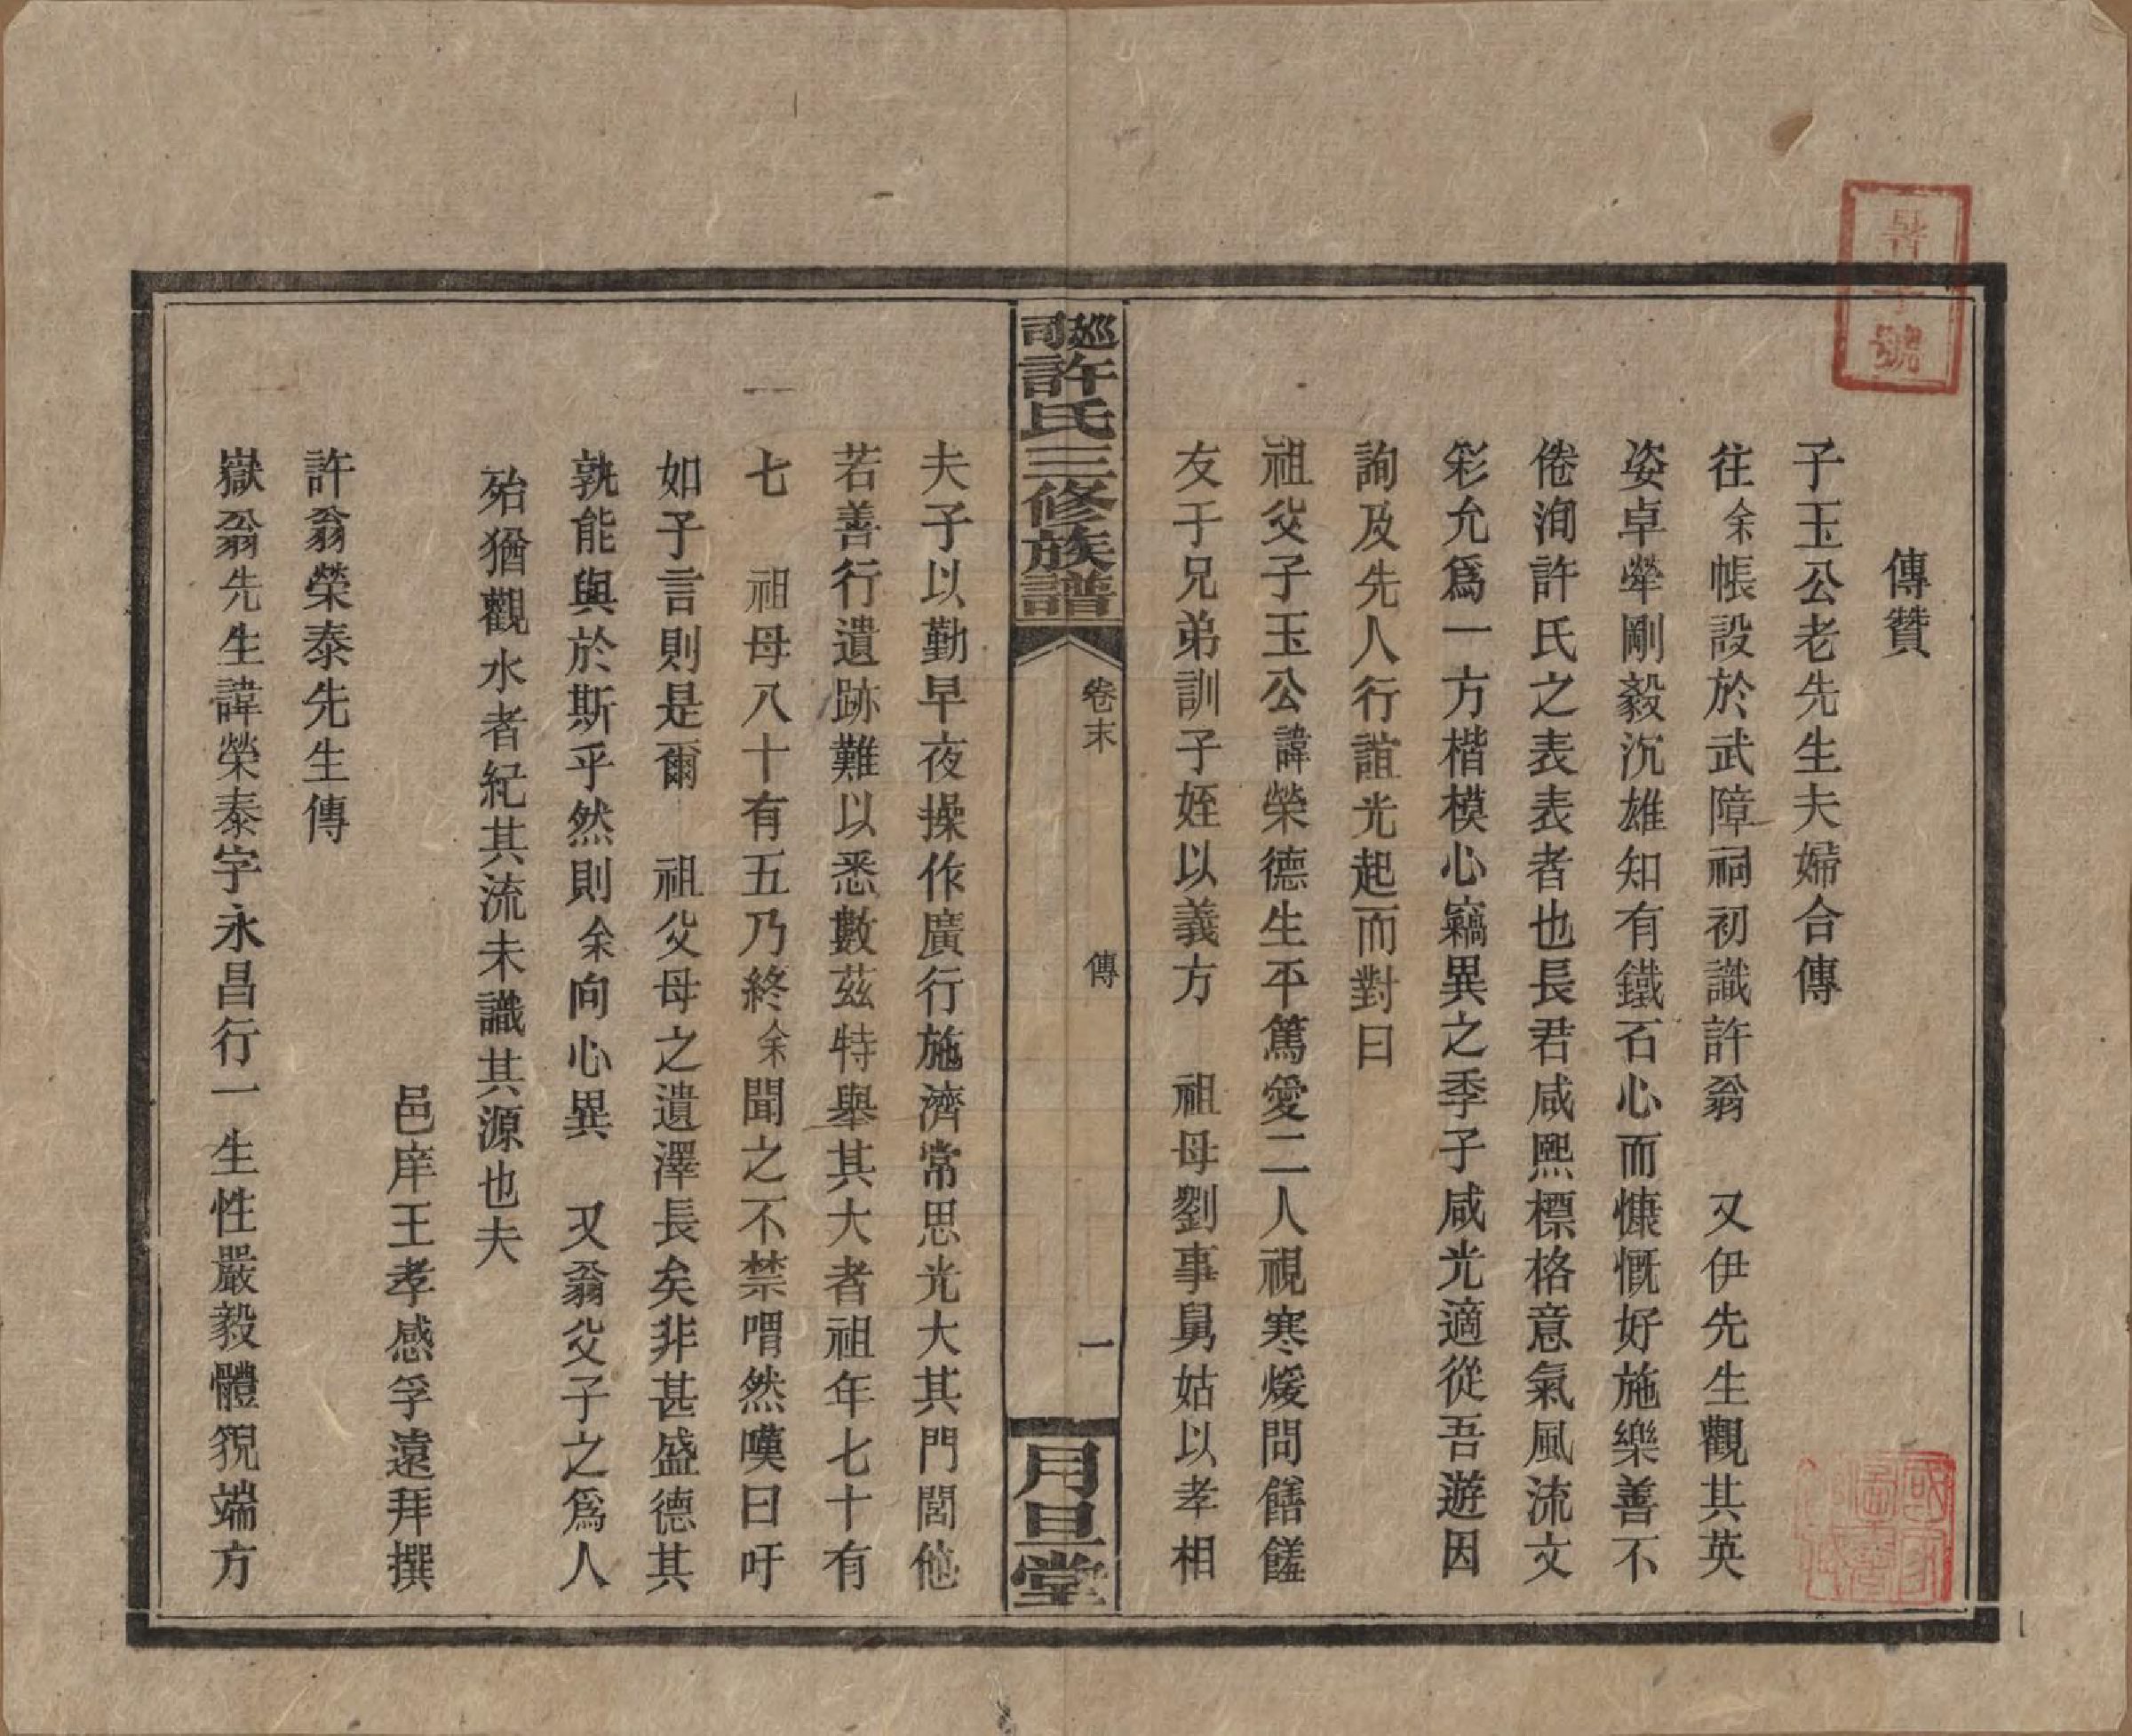 傳贊
子玉公老先生夫婦合傳
往余帳設於武障祠初識許翁　又伊先生觀其英
姿卓犖剛毅沉雄知有鐵石心而慷慨好施樂善不
倦洵許氏之表表者也長君咸熙標格意氣風流文
彩允爲一方楷模心竊異之季子咸光適從吾遊因
詢及先人行誼光起而對曰
祖父子玉公諱榮德生平篤愛二人視寒煖問饍饈
友于兄弟訓子姪以義方　祖母劉事舅姑以孝相
巡司許氏三修族譜
卷末
傳
一
月旦堂
夫子以勤早夜操作廣行施濟常思光大其門閭他
若善行遺跡難以悉數茲特舉其大者祖年七十有
七　祖母八十有五乃終余聞之不禁喟然嘆曰吁
如子言則是爾　祖父母之遺澤長矣非甚盛德其
孰能與於斯乎然則余向心異　又翁父子之爲人
殆猶觀水者紀其流未識其源也夫
邑庠王孝感孚遠拜撰
許翁榮泰先生傳
嶽翁先生諱榮泰字永昌行一生性嚴毅體貌端方
號